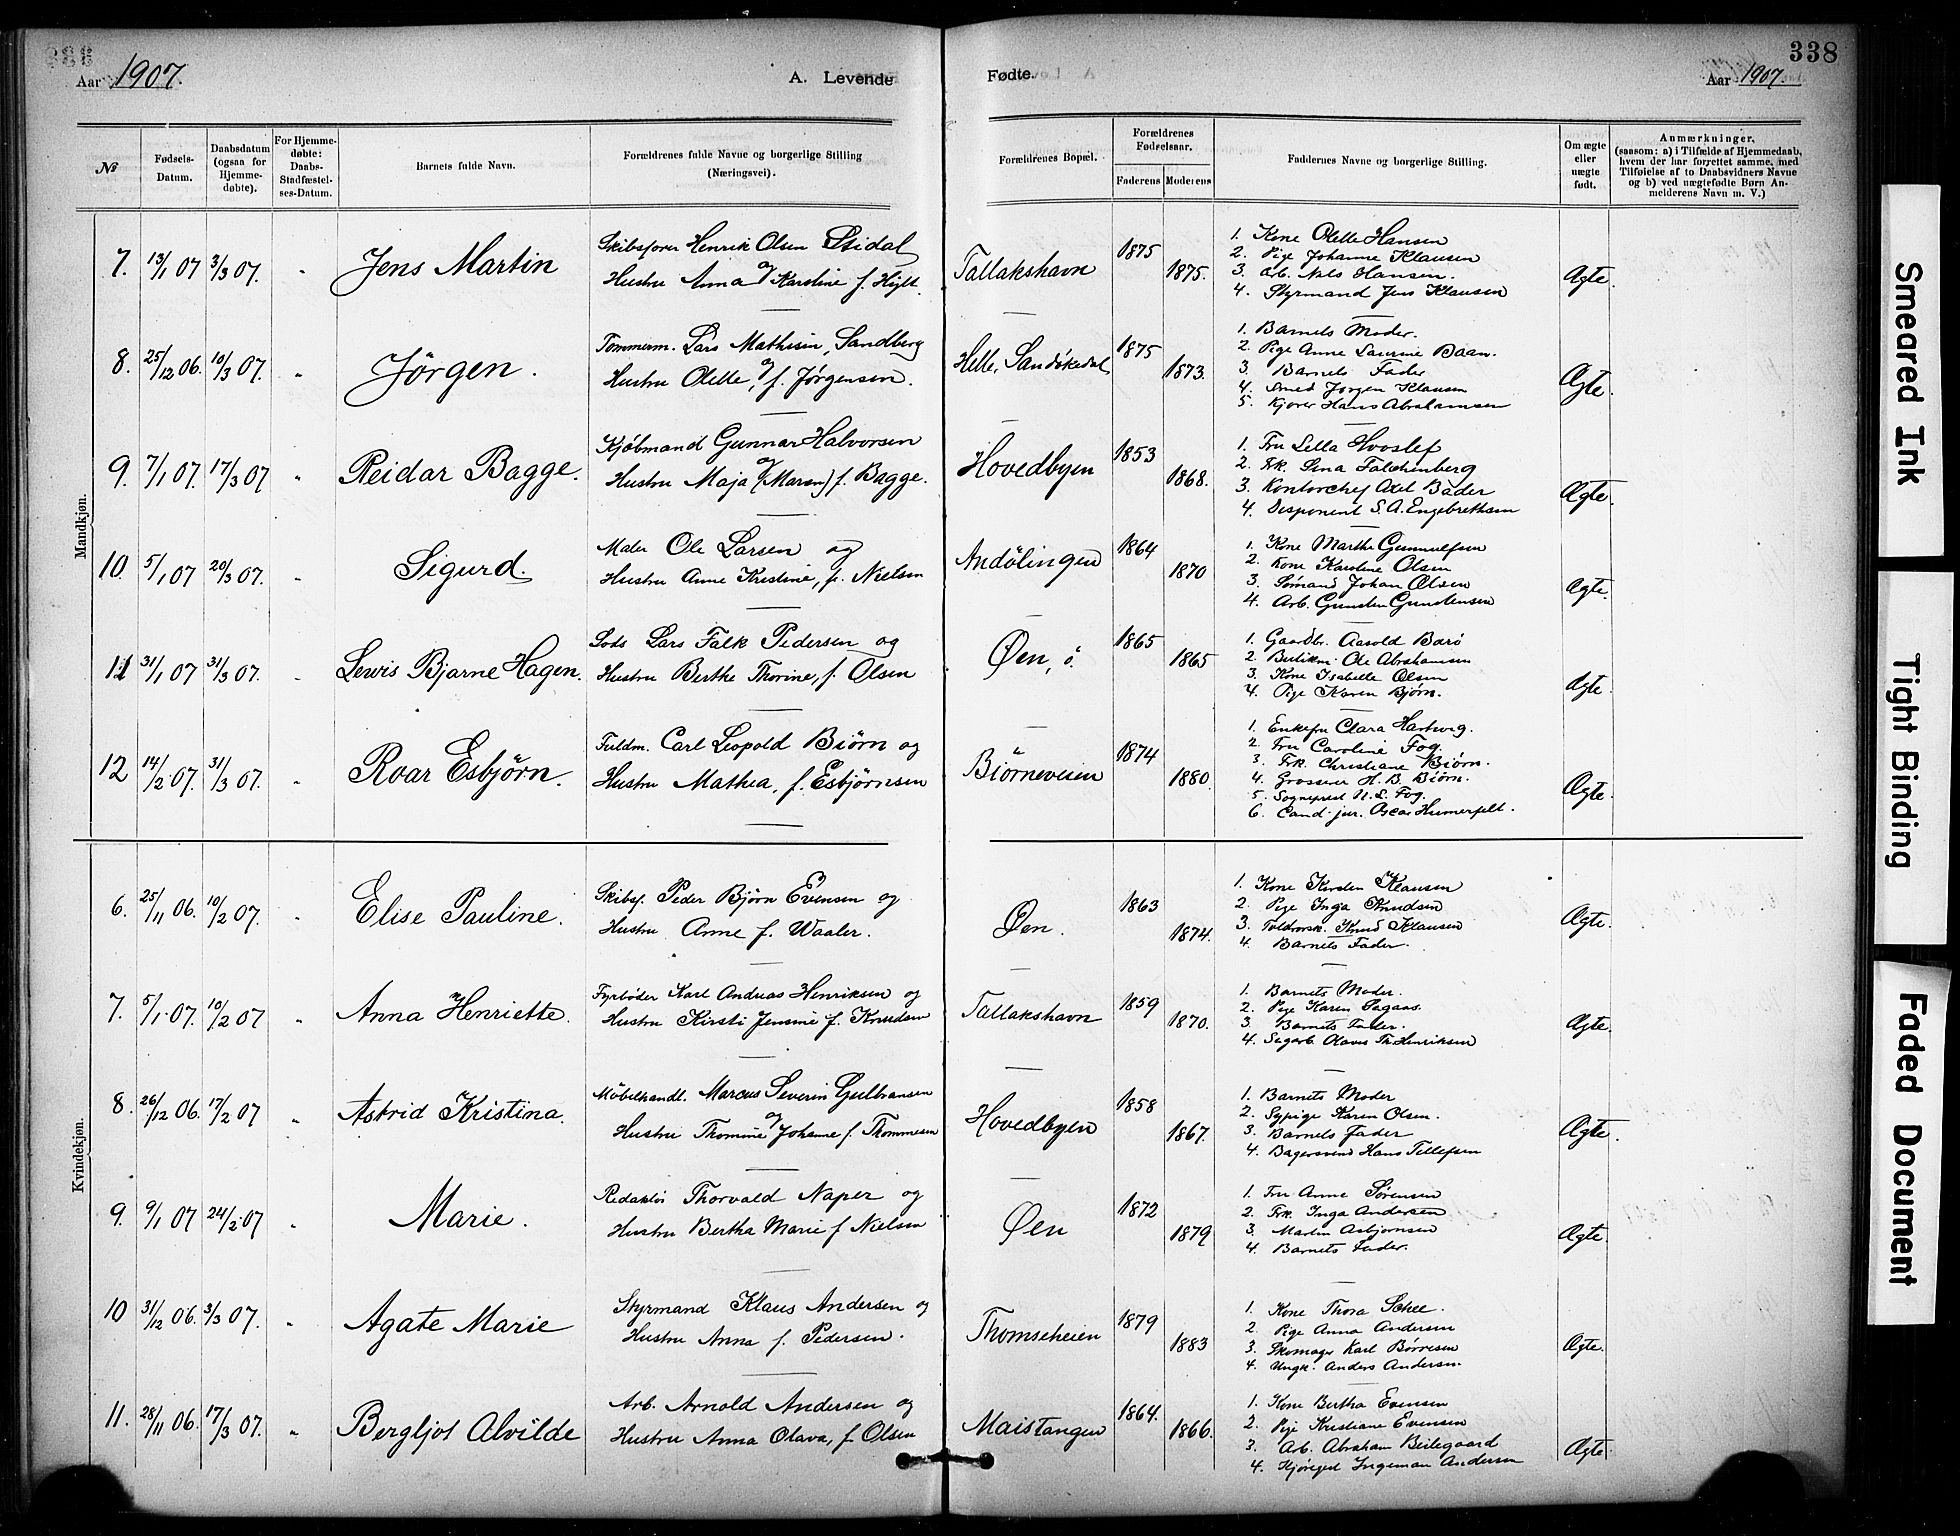 338
Aar 1907. A. Levende Fødte. Aar 1907.
№ Fødsels-Datum. Daabsdatum (ogsaa for Hjemme-døbte). For Hjemme-døbte: Daabs-Stadfæstel-ses-Datum. Barnets fulde Navn. Forældrenes fulde Navne og borgerlige Stilling (Næringsvei). Forældrenes Bopæl. Forældrenes Fødselsaar. Faderens Moderens Faddernes Navne og borgerlige Stilling. Om ægte eller uægte født. Anmærkninger. (saasom: a) i Tilfælde af Hjemmedaab, hvem der har forrettet samme, med Tilføielse af to Daabsvidners Navne og b) ved uægtefødte Børn An-melderens Navn m. V.)
Mandkjøn.
7. 13/1 07 3/3 07. " Jens Martin
Skibsfører Henrik Olsen Stidal og
Hustru Anna Karoline f. Higt.
Tallakshavn 1875 1875.
1. Kone Olette Hansen
2. Pige Johanne Klausen
3. Arb. Nils Hansen.
4. Styrmand Jens Klausen
Ægte.
8. 25/12 06. 10/3 07. " Jörgen.
Tømmerm. Lars Mathisen, Sandberg og
Hustru Olette, f. Jørgensen.
Helle, Sandøkedal 1875 1873.
1. Barnets Moder.
2. Pige Anne Laurine Baan.
3. Barnets Fader
4. Smed Jørgen Klausen
5. Kjører Hans Abrahamsen
Ægte.
9. 7/1 07. 17/3 07 " Reidar Bagge.
Kjøbmand Gunnar Halvorsen og
Hustru Maja (Maren) f. Bagge.
Hovedbyen 1853 1868.
1. Fru Lella Hvoslef
2. Frk. Lena Falchenberg
3. Kontorchef Axel Bader
4. Disponent S. A. Engebrethsen
Ægte.
10. 5/1 07 20/3 07. " Sigurd.
Maler Ole Larsen og
Hustru Anne Kristine, f. Nielsen
Andølingen 1864 1870
1. Kone Marthe Gunnulfsen
2. Kone Karoline Olsen
3. Sømand Johan Olsen
4. Arb. Gunsten Gunstensen
Ægte.
11 31/1 07 31/3 07. " Lewis Bjarne Hagen.
Lods Lars Falk Pedersen og
Hustru Berthe Thorine, f. Olsen
Øen, ö. 1865 1865
1. Gaardbr. Aasold Barø
2. Butikm. Ole Abrahamsen
3. Kone Isabelle Olsen
4. Pige Karen Bjørn.
Ægte.
12 14/2 07. 31/3 07. " Roar Esbjørn.
Fuldm. Carl Leopold Biörn og
Hustru Mathea, f. Esbjørnsen
Biörneveien 1874 1880.
1. Enkefru Clara Hartwig.
2. Fru Caroline Fog.
3. Frk. Christiane Biörn.
4. Grosserer H. B. Biörn.
5. Sogneprest N. L. Fog.
6. Cand. jur. Oscar Humerfelt.
Ægte.
Kvindekjøn.
6. 25/11 06. 10/2 07. " Elise Pauline.
Skibsf. Peder Bjørn Evensen og
Hustru Anne f. Waaler.
Øen. 1863 1874.
1. Kone Kirsten Klausen
2. Pige Inga Knudsen
3. Toldvorsk. Knud Klausen
4. Barnets Fader.
Ægte.
7. 5/1 07. 10/2 07 " Anna Henriette.
Fyrbøder Karl Andreas Henriksen og
Hustru Kirsti Jensine f. Knudsen
Tallakshavn 1859 1870.
1. Barnets Moder.
2. Pige Karen Sagaas.
3. Barnets Fader.
4. Sagarb. Olaves Th. Henriksen
Ægte.
8. 26/12 06. 17/2 07 " Astrid Kristina.
Møbelhandl. Marcus Severin Gulbransen og
Hustru Thomine Johanne f. Thommesen
Hovedbyen 1858 1867.
1. Barnets Moder
2. Sypige Karen Olsen.
3. Barnets Fader
4. Bagersvend Hans Tellefsen
Ægte.
9. 9/1 07 24/2 07 " Marie.
Redaktør Thorvald Naper og
Hustru Bertha Marie f. Nielsen
Øen 1872 1879
1. Fru Anne Sørensen
2. Frk. Inga Andersen
3. Martin Asbjørnsen
4. Barnets Fader.
Ægte.
10 31/12 06. 3/3 07. " Agate Marie
Styrmand Klaus Andersen og
Hustru Anna f. Pedersen.
Thomseheien 1879 1883
1. Kone Thora Schee.
2. Pige Anna Andersen
3. Skomager Karl Børresen
4. Ungk. Anders Andersen.
Ægte.
11. 28/11 06. 17/3 07. " Bergljot Alvilde
Arb. Arnold Andersen og
Hustru Anna Olava, f. Olsen
Maistangen 1864. 1866.
1. Kone Bertha Evensen
2. Pige Kristiane Evensen
3. Arb. Abraham Beilegaard
4. Kjøregut Ingeman Andersen
Ægte.
Smeared Ink
Tight Binding
Faded Document